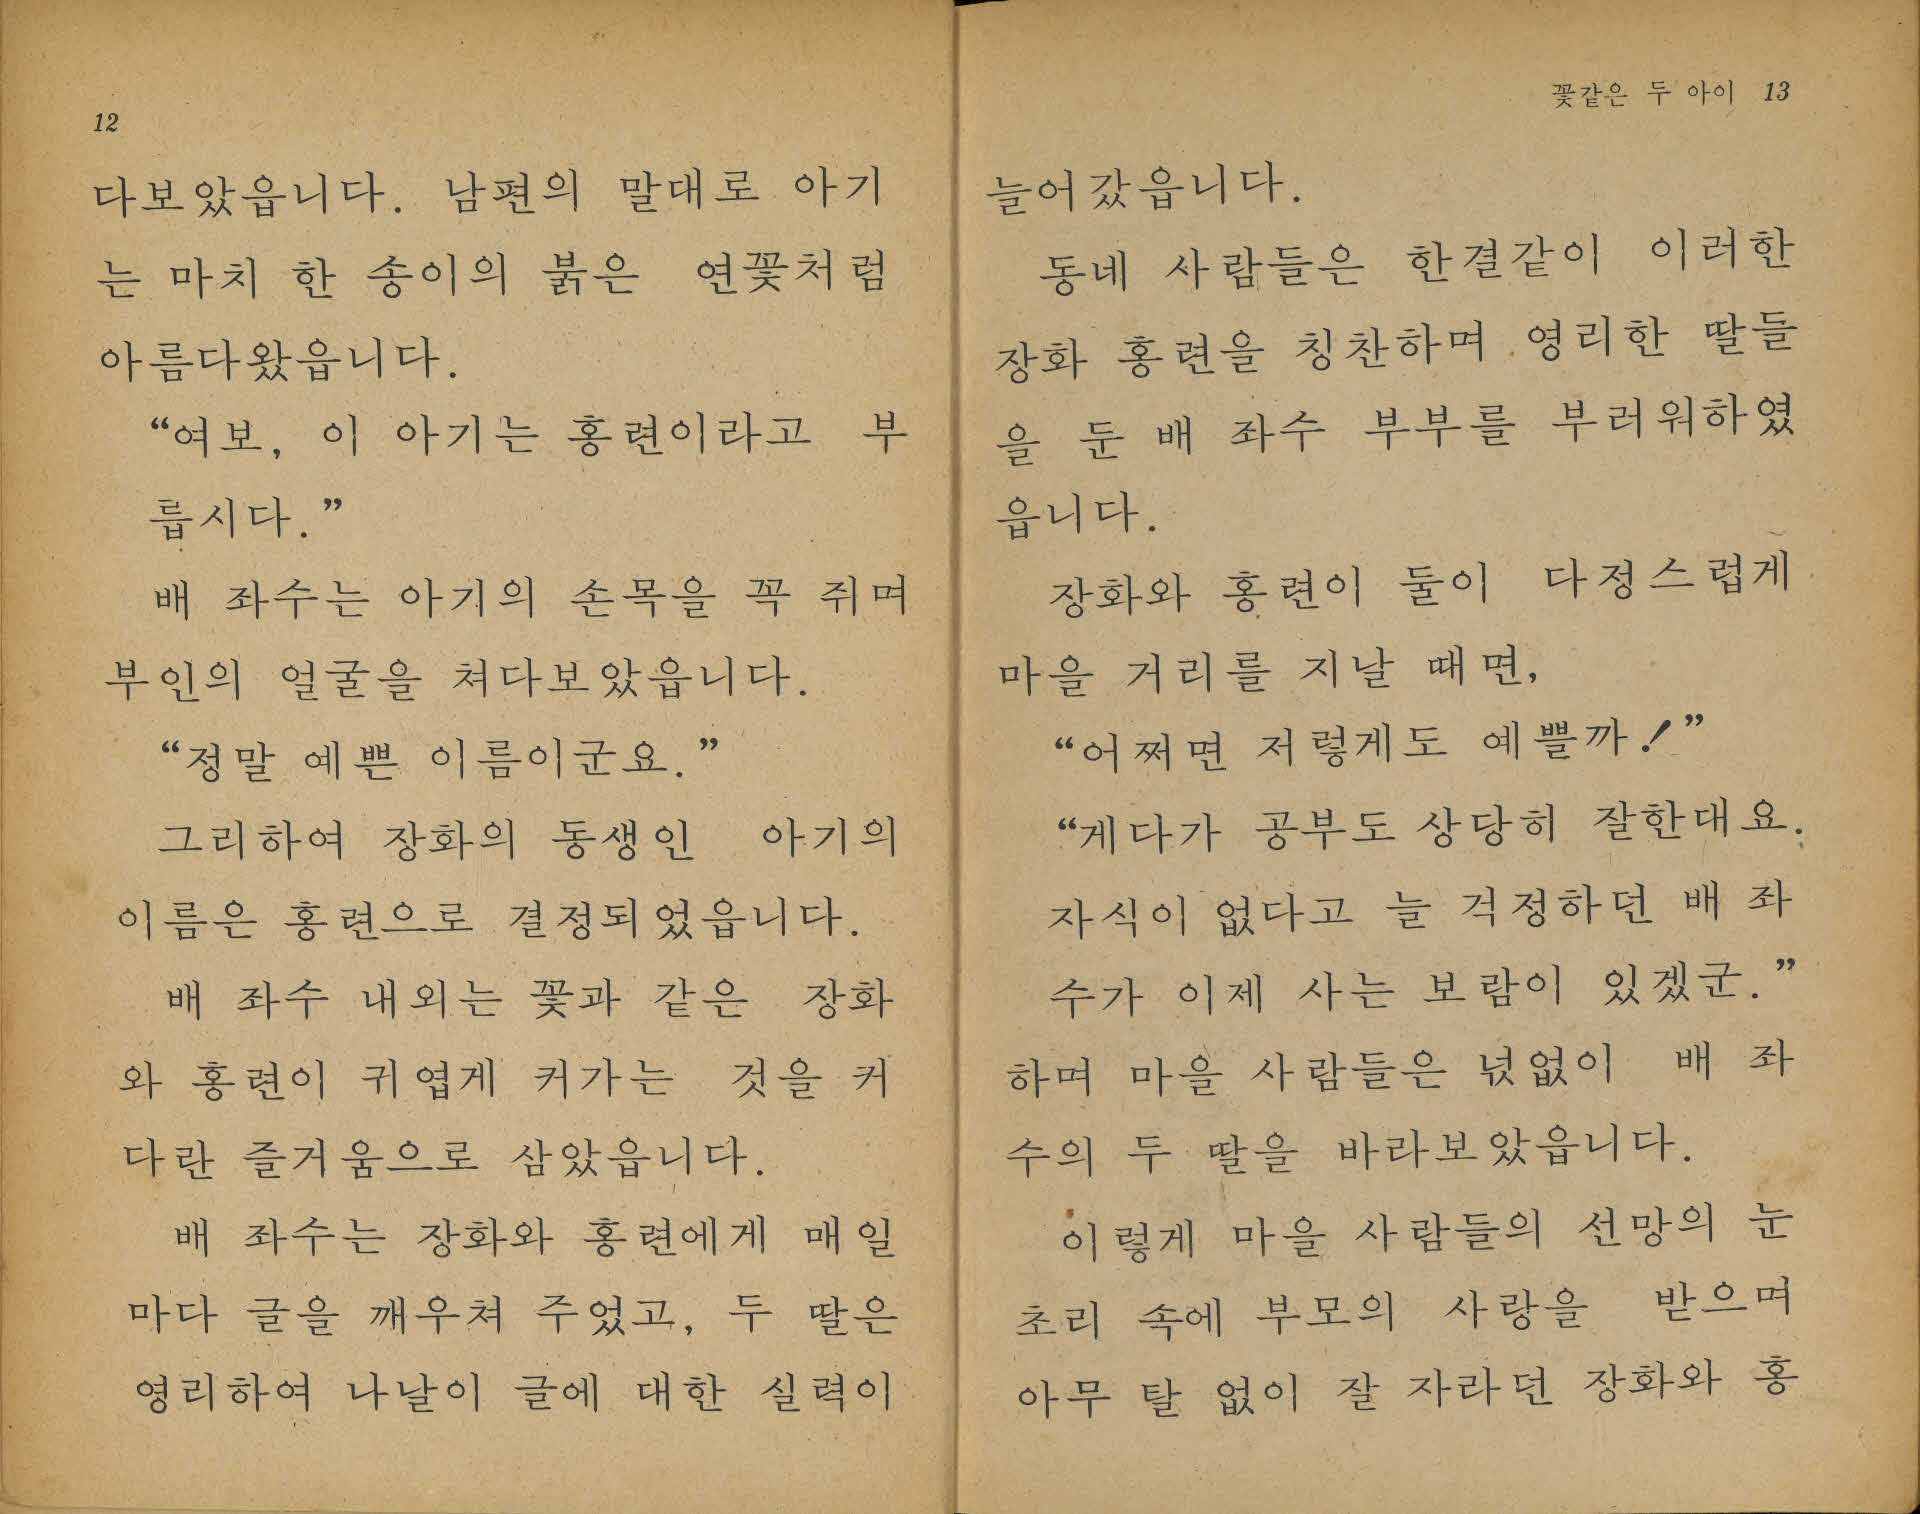 12
다보았읍니다. 남편의 말대로 아기
는 마치 한 송이의 붉은 연꽃처럼
아름다왔읍니다.
“여보, 이 아기는 홍련이라고 부
릅시다.”
배 좌수는 아기의 손목을 꼭 쥐며
부인의 얼굴을 쳐다보았읍니다.
“정말 예쁜 이름이군요.”
그리하여 장화의 동생인 아기의
이름은 홍련으로 결정되었읍니다.
배 좌수 내외는 꽃과 같은 장화
와 홍련이 귀엽게 커가는 것을 커
다란 즐거움으로 삼았읍니다.
배 좌수는 장화와 홍련에게 매일
마다 글을 깨우쳐 주었고, 두 딸은
영리하여 나날이 글에 대한 실력이
꽃같은 두 아이 13
늘어갔읍니다.
동네 사람들은 한결같이 이러한
장화 홍련을 칭찬하며 영리한 딸들
을 둔 배 좌수 부부를 부러워하였
읍니다.
장화와 홍련이 둘이 다정스럽게
마을 거리를 지날 때면,
“어쩌면 저렇게도 예쁠까!”
“게다가 공부도 상당히 잘한대요.
자식이 없다고 늘 걱정하던 배 좌
수가 이제 사는 보람이 있겠군.”
하며 마을 사람들은 넋없이 배 좌
수의 두 딸을 바라보았읍니다.
이렇게 마을 사람들의 선망의 눈
초리 속에 부모의 사랑을 받으며
아무 탈 없이 잘 자라던 장화와 홍